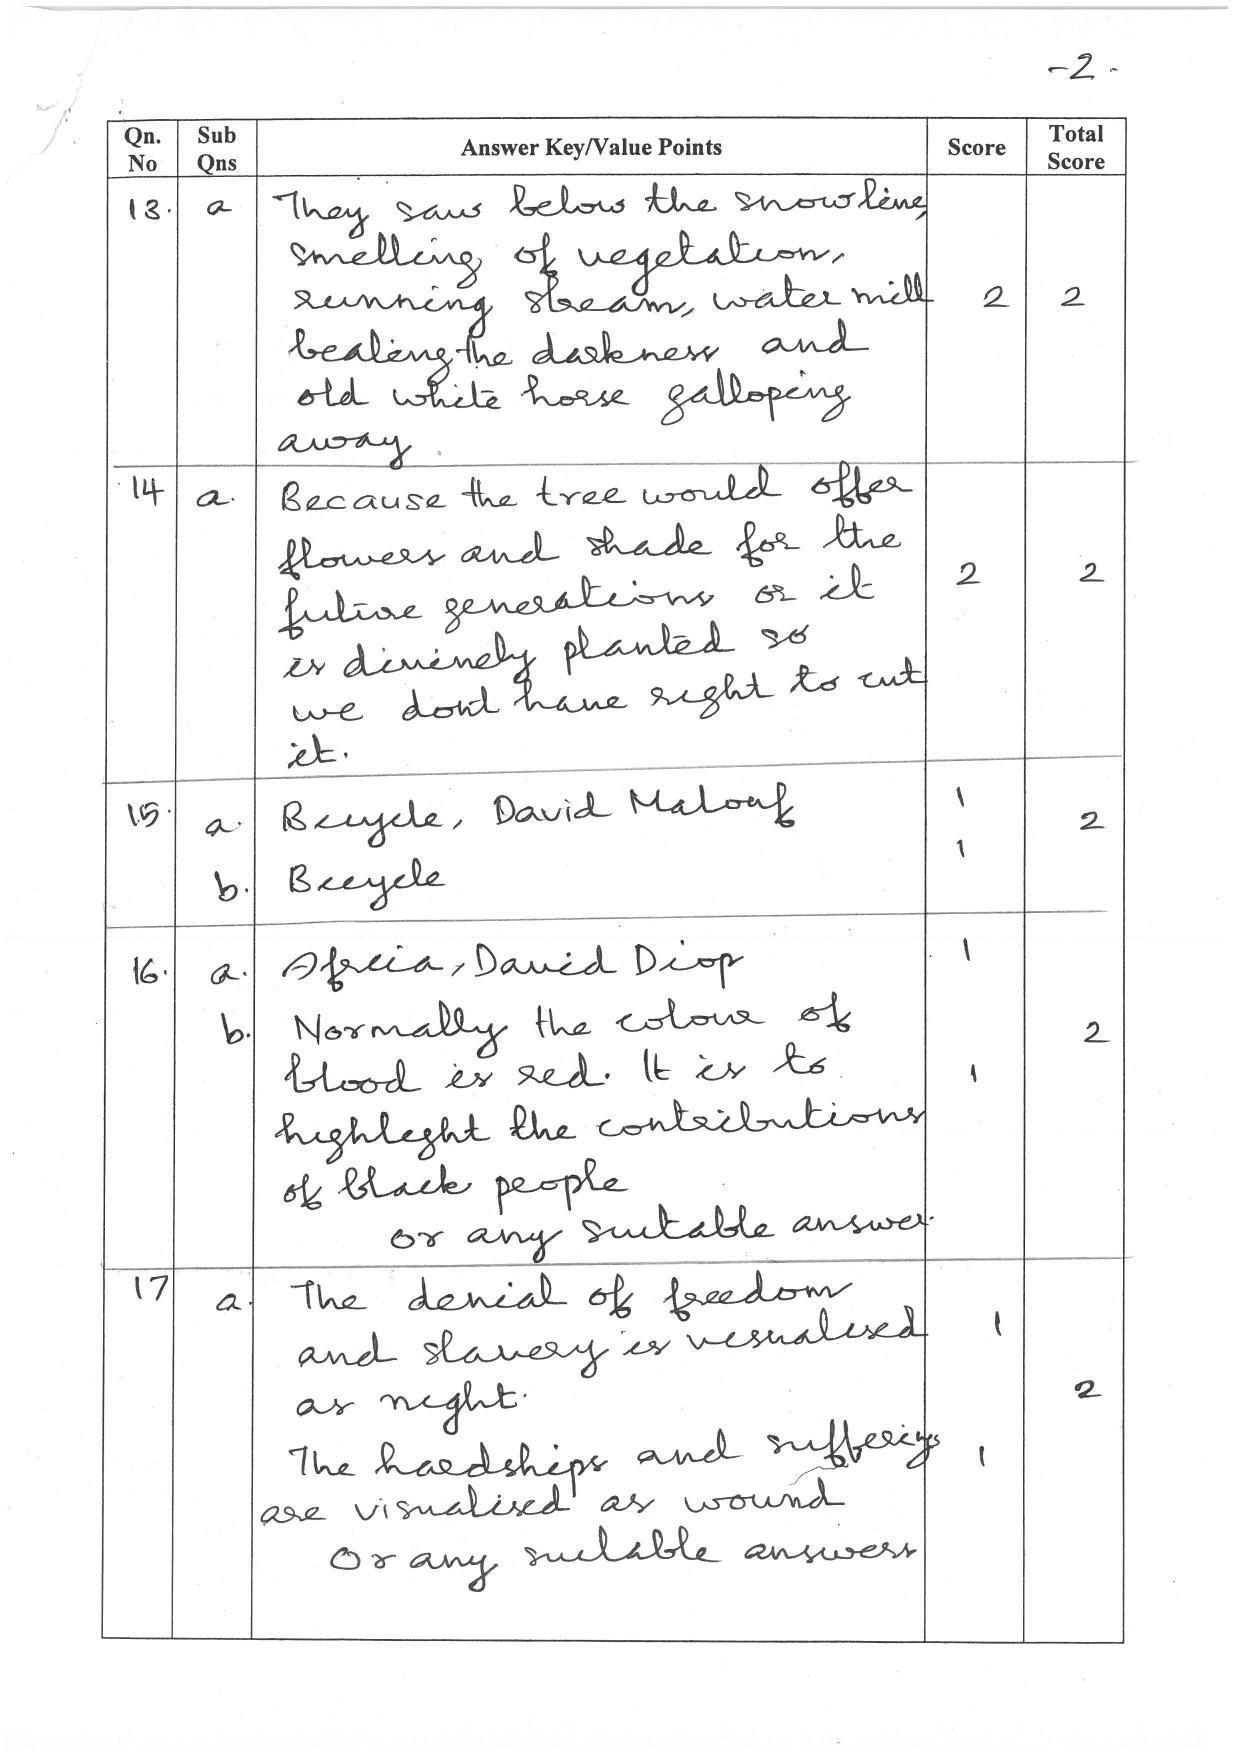 -2-
Qn. No | Sub Qns | Answer Key/Value Points | Score | Total Score
13. a They saw below the snowline,
smelling of vegetation,
running stream, water mill 2 2
beating the darkness and
old white horse galloping
away.
14 a. Because the tree would offer
flowers and shade for the
future generations or it 2 2
is divinely planted so
we dont have right to cut
it.
15. a. Bicycle, David Malouf 1 2
b. Bicycle 1
16. a. Africa, David Diop 1
b. Normally the colour of 2
blood is red. It is to 1
highlight the contributions
of black people
or any suitable answer.
17 a. The denial of freedom
and slavery is visualised 1
as night. 2
The hardships and sufferings 1
are visualised as wound
Or any suitable answers